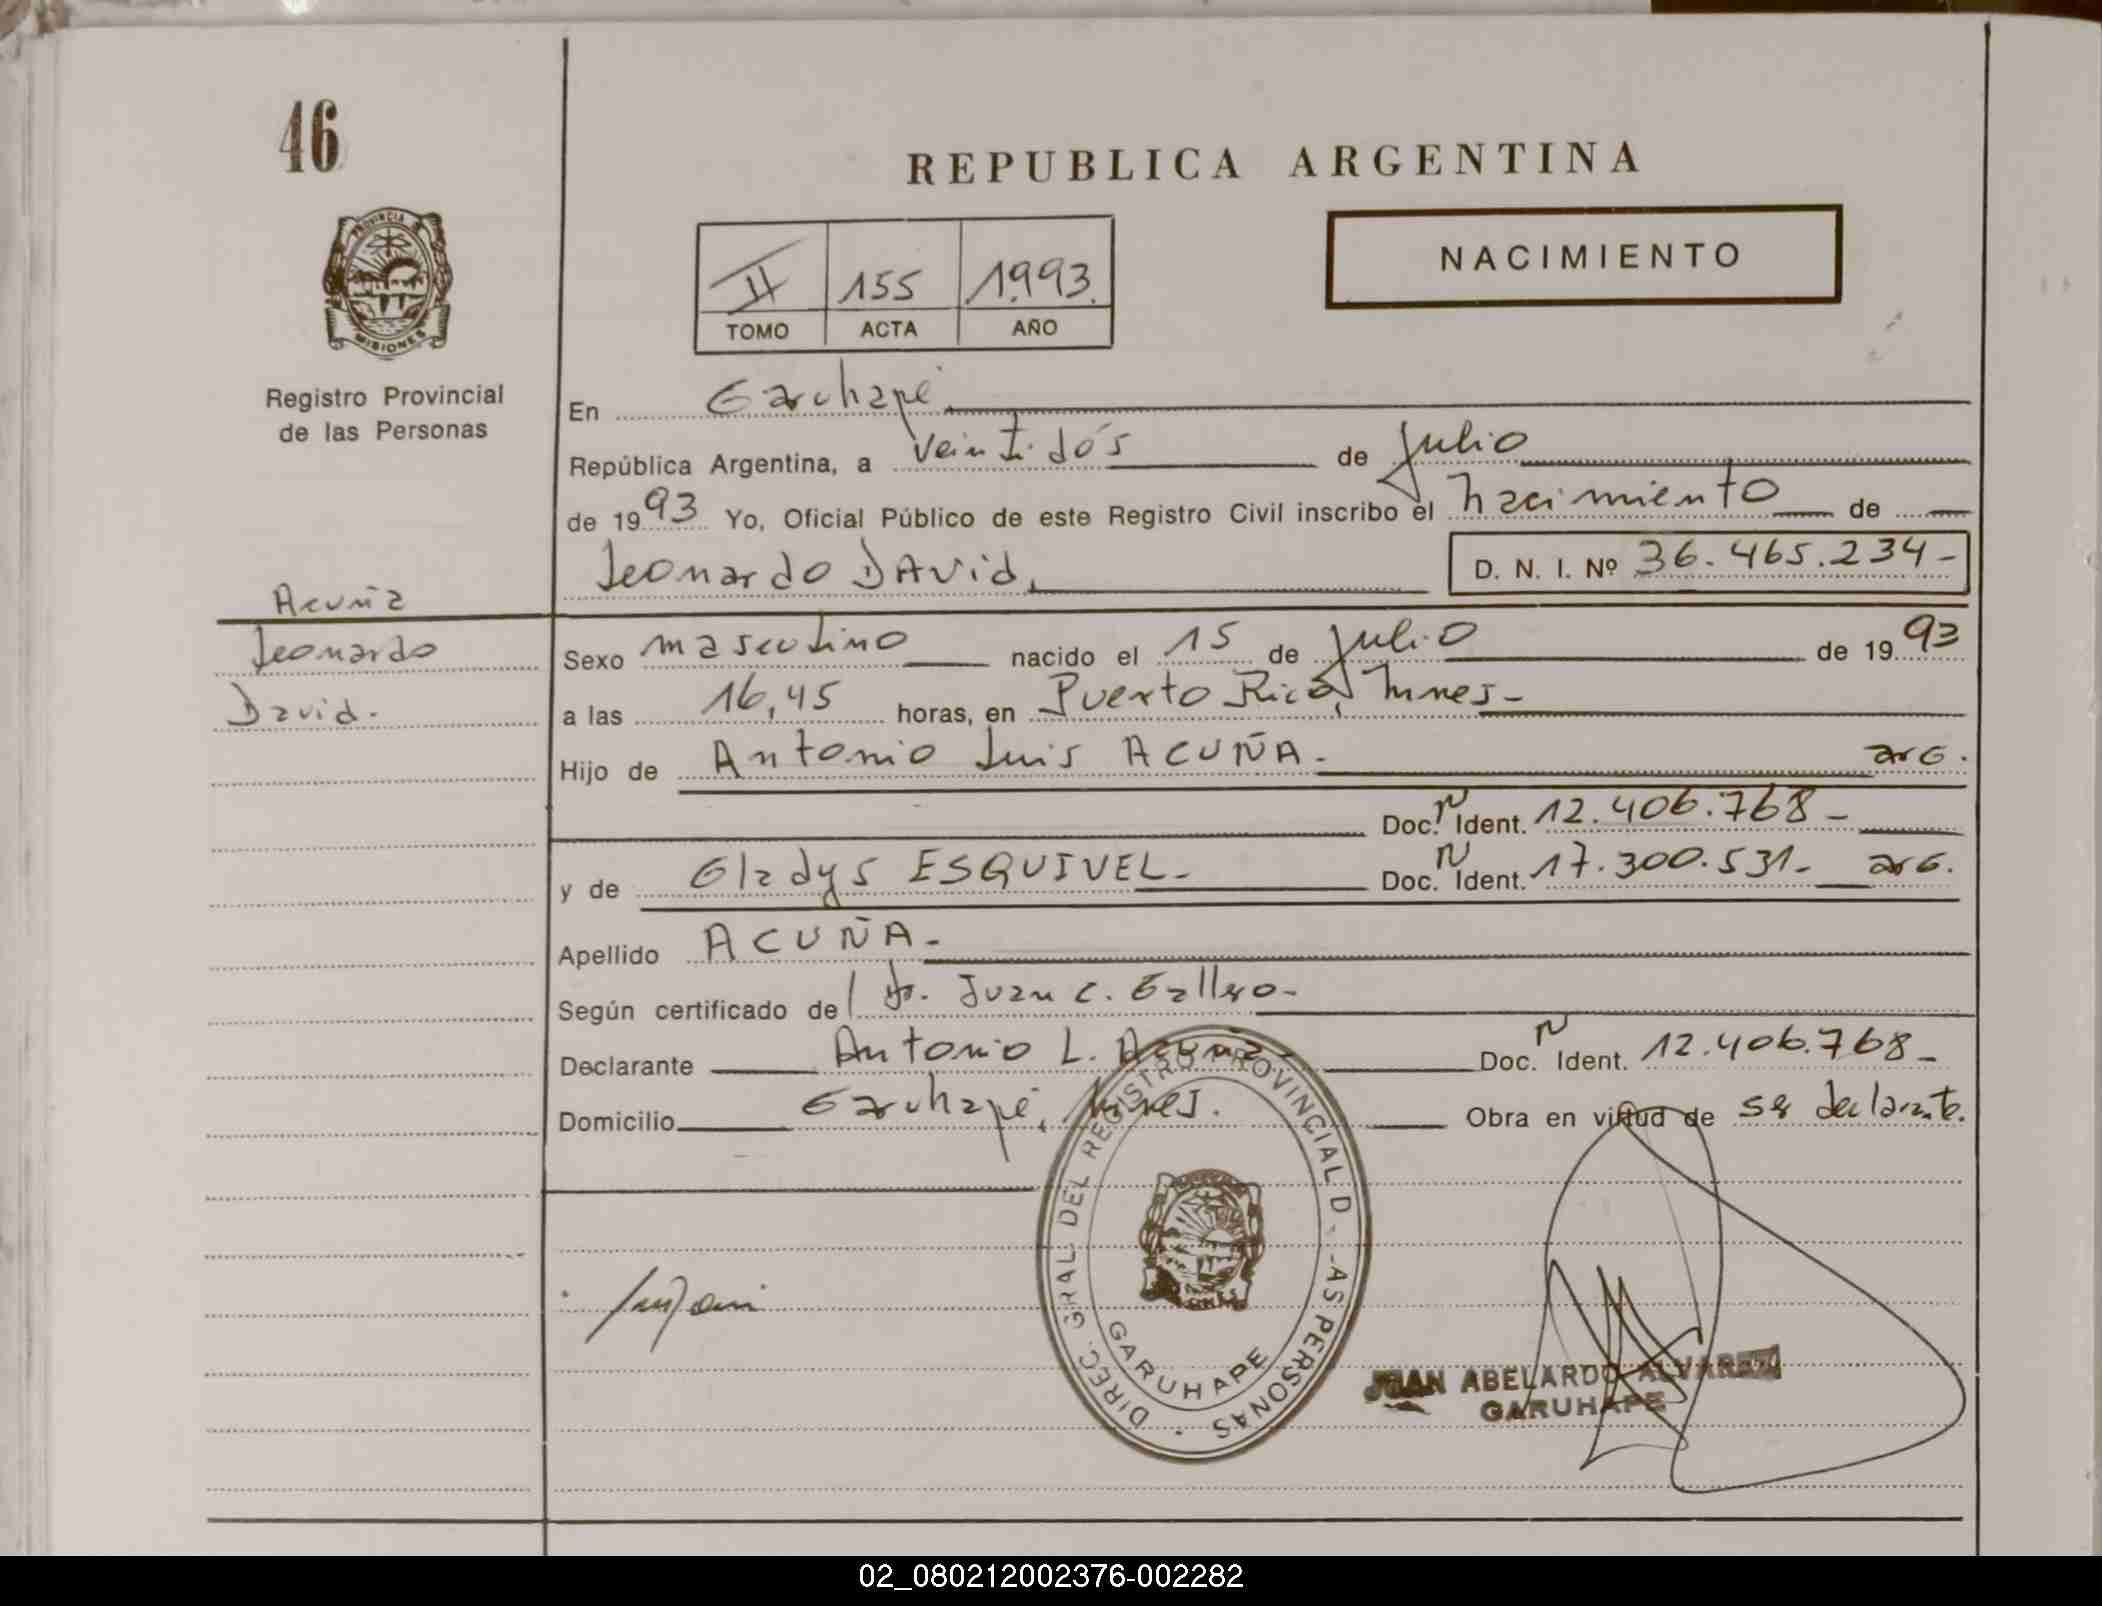 46
REPUBLICA ARGENTINA
NACIMIENTO
II 155 1.993.
TOMO ACTA AÑO
PROVINCIA DE MISIONES
Registro Provincial
de las Personas
En Garuhapé
República Argentina, a veintidós de Julio
de 1993 Yo, Oficial Público de este Registro Civil inscribo el nacimiento de
Leonardo DAvid, D. N. I. Nº 36.465.234-
Acuña
Leonardo
David.
Sexo masculino nacido el 15 de Julio de 1993
a las 16,45 horas, en Puerto Rico, Mnes-
Hijo de Antonio Luis ACUÑA. arG.
Doc. N Ident. 12.406.768-
y de Gladys ESQUIVEL- Doc. N Ident. 17.300.531- arG.
Apellido ACUÑA-
Según certificado de Dr. Juan C.
Declarante Antonio L. Acuña- Doc. N Ident. 12.406.768-
Domicilio Garuhapé, Mnes. Obra en virtud de ser declarante.
DIREC. GRAL DEL REGISTRO PROVINCIAL D LAS PERSONAS
GARUHAPE
JUAN ABELARDO ALVAREZ
GARUHAPE
02_080212002376-002282